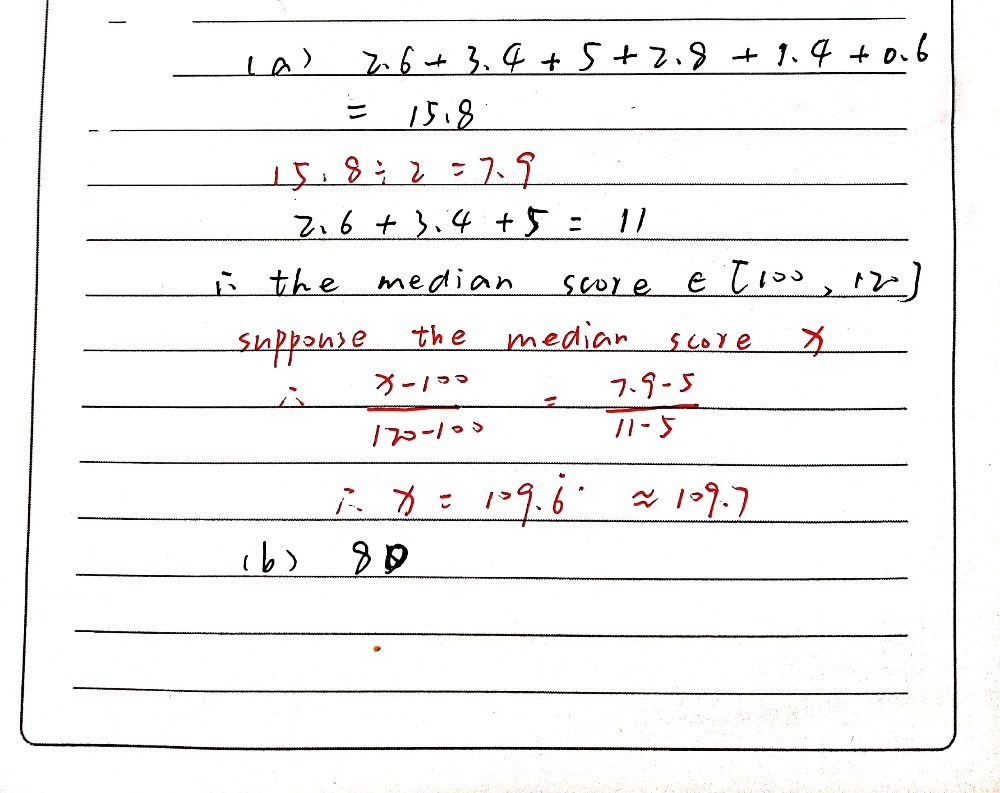 (a) 2.6 + 3.4 + 5 + 2.8 + 1.4 + 0.6
= 15.8
15.8 ÷ 2 = 7.9
2.6 + 3.4 + 5 = 11
∴ the median score ∈ [100, 120]
supponse the median score x
∴ x-100/120-100 = 7.9-5/11-5
∴ x = 109.6̇ ≈ 109.7
(b) 80